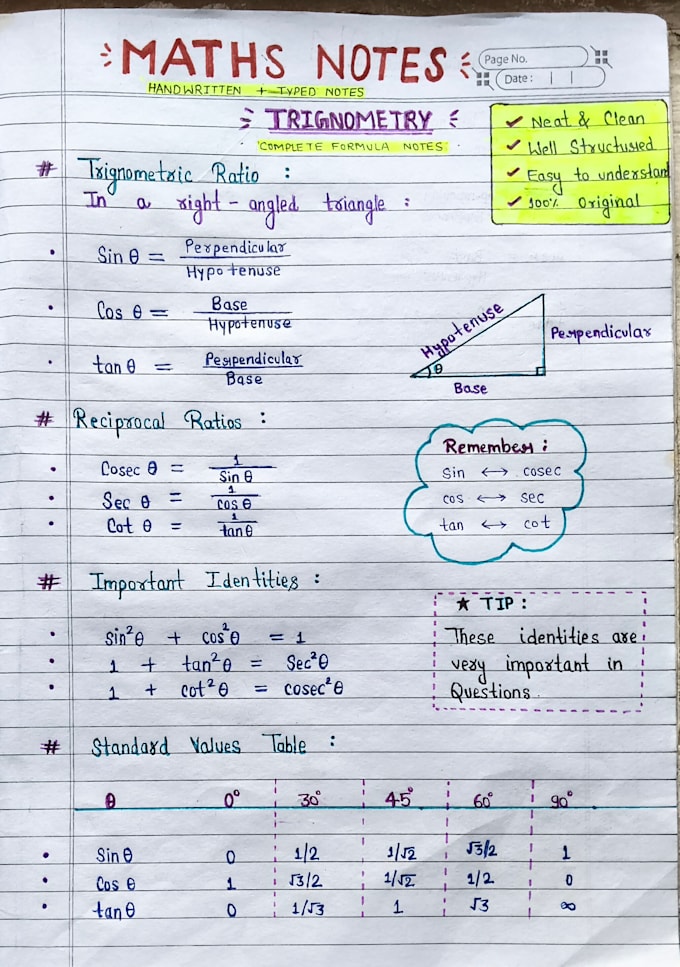 MATHS NOTES
Page No.
Date : | |
HANDWRITTEN + TYPED NOTES
TRIGNOMETRY
COMPLETE FORMULA NOTES
✓ Neat & Clean
✓ Well Structured
✓ Easy to understand
✓ 100% Original
# Trignometric Ratio :
In a right-angled triangle :
• Sin θ = Perpendicular / Hypotenuse
• Cos θ = Base / Hypotenuse
• tan θ = Perpendicular / Base
Hypotenuse
Perpendicular
θ
Base
# Reciprocal Ratios :
• Cosec θ = 1 / Sin θ
• Sec θ = 1 / cos θ
• Cot θ = 1 / tan θ
Remember :
Sin ↔ cosec
cos ↔ sec
tan ↔ cot
# Important Identities :
• sin²θ + cos²θ = 1
• 1 + tan²θ = Sec²θ
• 1 + cot²θ = cosec²θ
★ TIP :
These identities are
very important in
Questions.
# Standard Values Table :
θ 0° 30° 45° 60° 90°
• Sin θ 0 1/2 1/√2 √3/2 1
• Cos θ 1 √3/2 1/√2 1/2 0
• tan θ 0 1/√3 1 √3 ∞